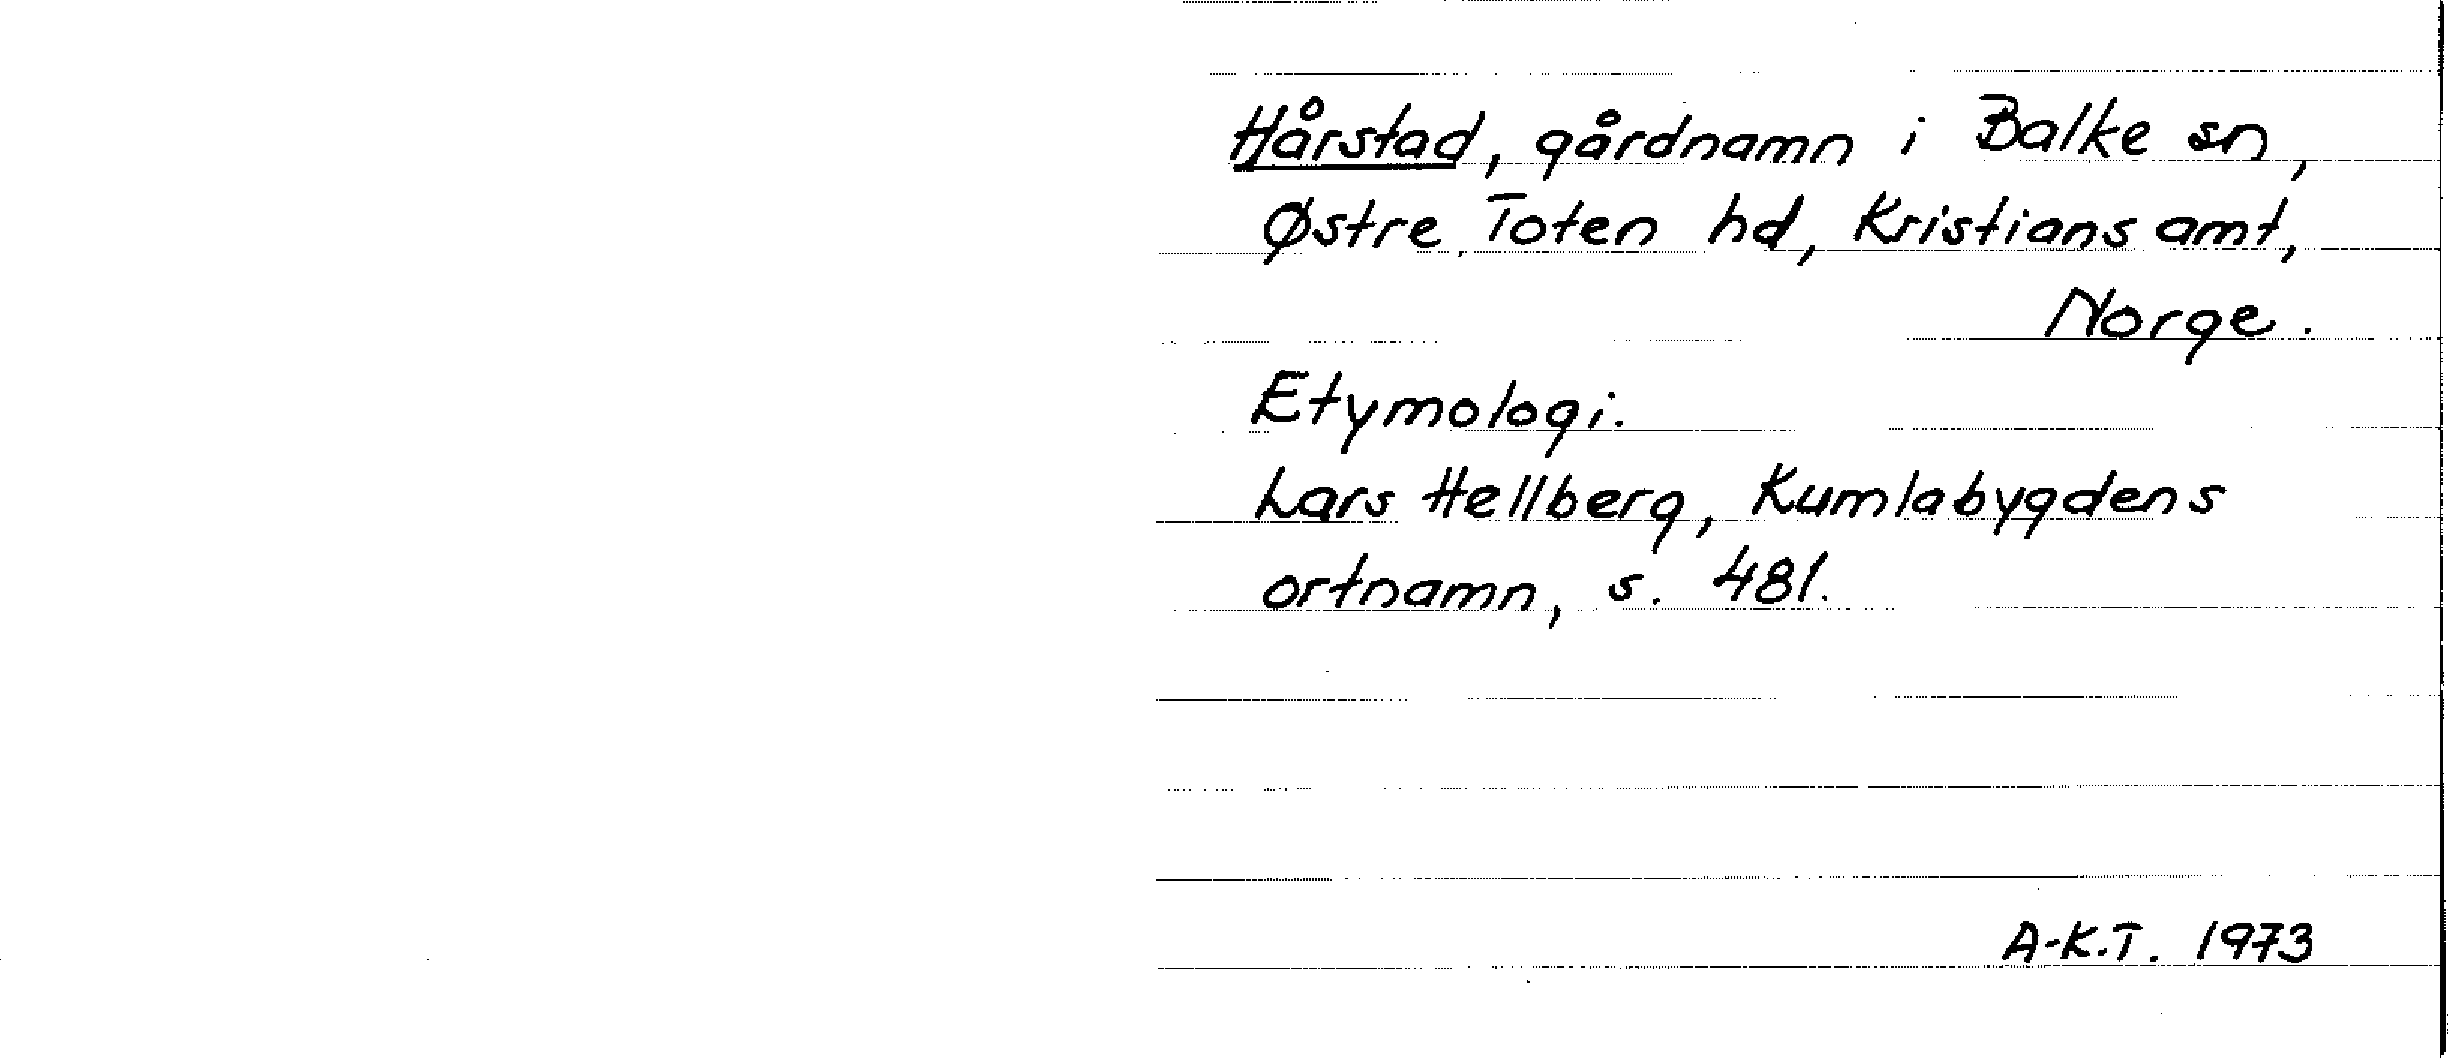 Hårstad, gårdnamn i Balke sn,
Østre Toten hd, Kristians amt,
Norge.
Etymologi.
Lars Hellberg, Kumlabygdens
ortnamn, s. 481.
A-K.T. 1973